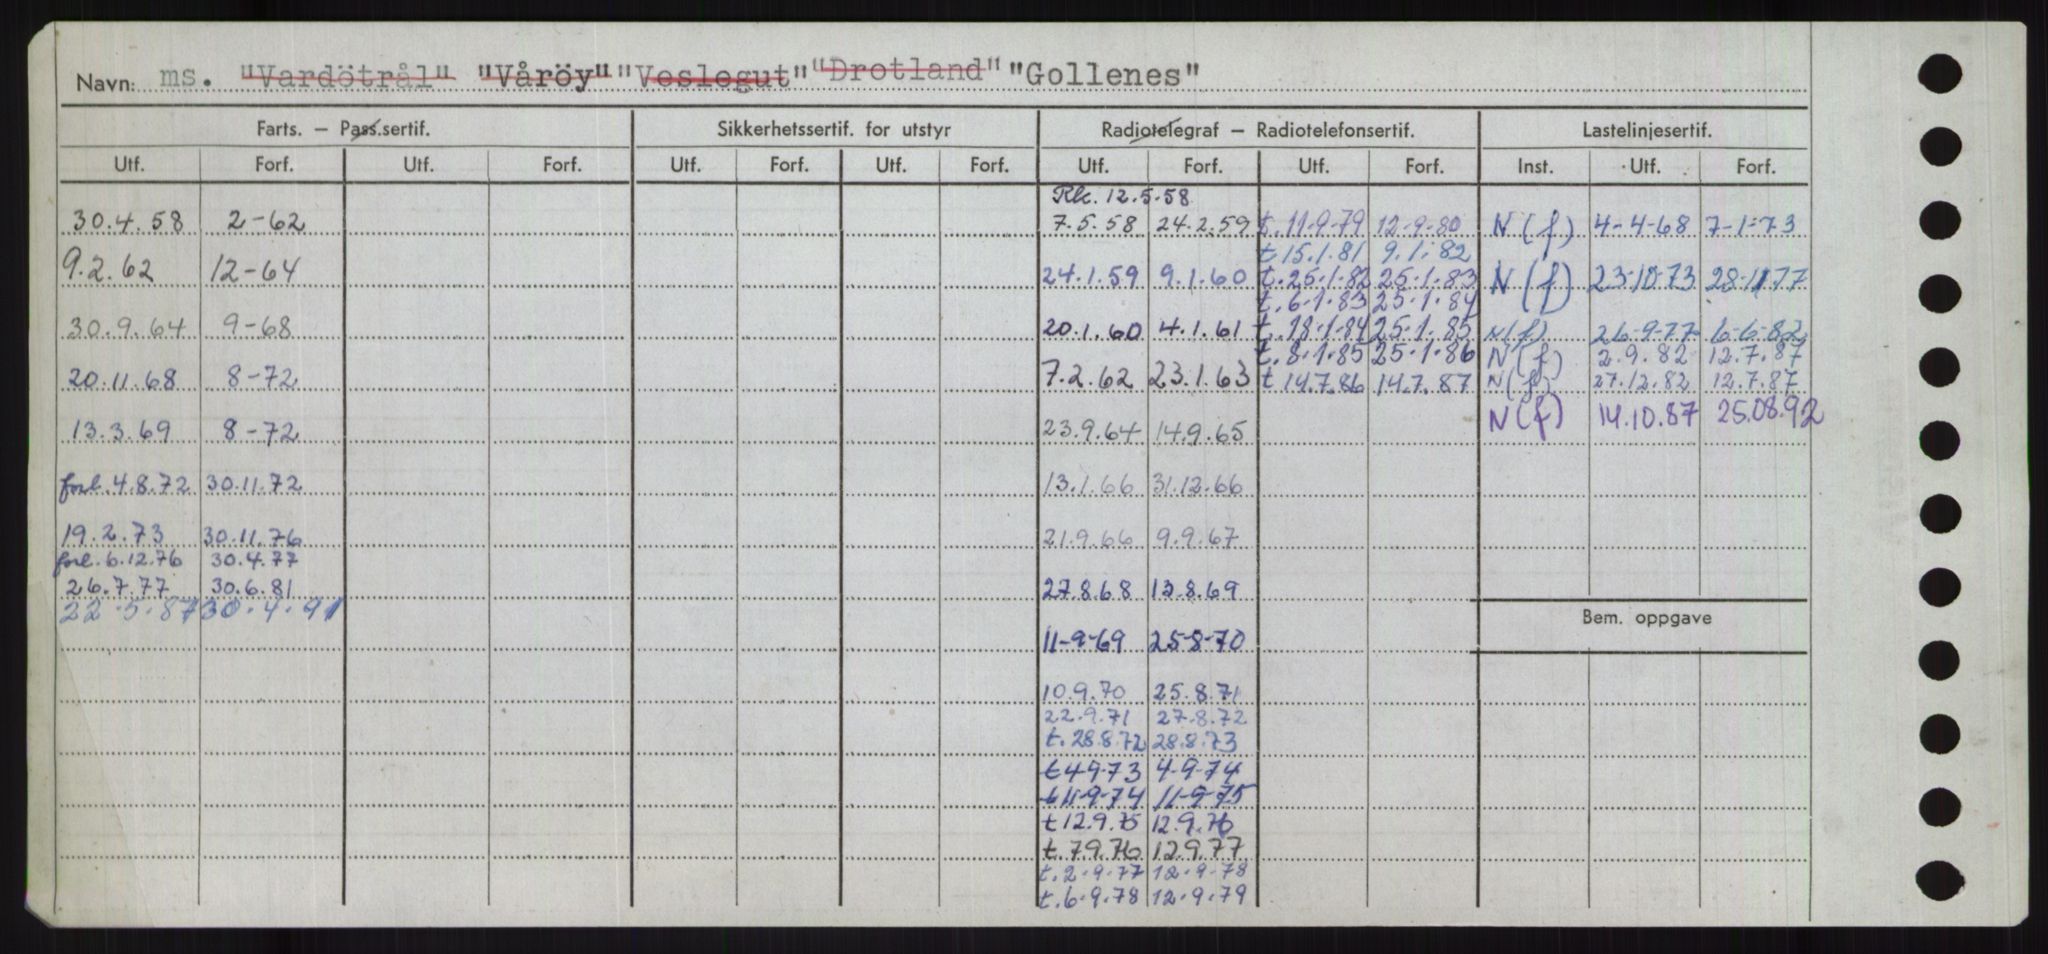 Navn: ms. "Vardötrål" "Våröy" "Veslegut" "Drotland" "Gollenes"
Farts. – Pass.sertif. Sikkerhetssertif. for utstyr Radiotelegraf – Radiotelefonsertif. Lastelinjesertif.
Utf. Forf. Utf. Forf. Utf. Forf. Utf. Forf. Utf. Forf. Utf. Forf. Inst. Utf. Forf.
Rk. 12.5.58
30.4.58 2-62 7.5.58 24.2.59 t. 11-9-79 12-9-80 N(f) 4-4-68 7-1-73
t 15.1.81 9.1.82
9.2.62 12-64 24.1.59 9.1.60 t. 25-1-82 25-1-83 N(f) 23-10-73 28-11-77
t. 6-1-83 25-1-84
30.9.64 9-68 20.1.60 4.1.61 t. 18-1-84 25-1-85 N(f) 26-9-77 6-6-82
t. 8-1-85 25-1-86 N(f) 2.9.82 12.7.87
20.11.68 8-72 7.2.62 23.1.63 t 14.7.86 14.7.87 N(f) 27.12.82 12.7.87
N(f) 14.10.87 25.08.92
13.3.69 8-72 23.9.64 14.9.65
forl. 4.8.72 30.11.72 13.1.66 31.12.66
19.2.73 30.11.76 21.9.66 9.9.67
forl. 6.12.76 30.4.77
26.7.77 30.6.81 27.8.68 13.8.69
22-5-87 30-4-91
Bem. oppgave
11-9-69 25-8-70
10.9.70 25.8.71
22.9.71 27.8.72
t. 28.8.72 28.8.73
t 4-9-73 4-9-74
t 11-9-74 11-9-75
t 12.9.75 12.9.76
t. 7.9.76 12.9.77
t. 2-9-77 12-9-78
t. 6.9.78 12.9.79